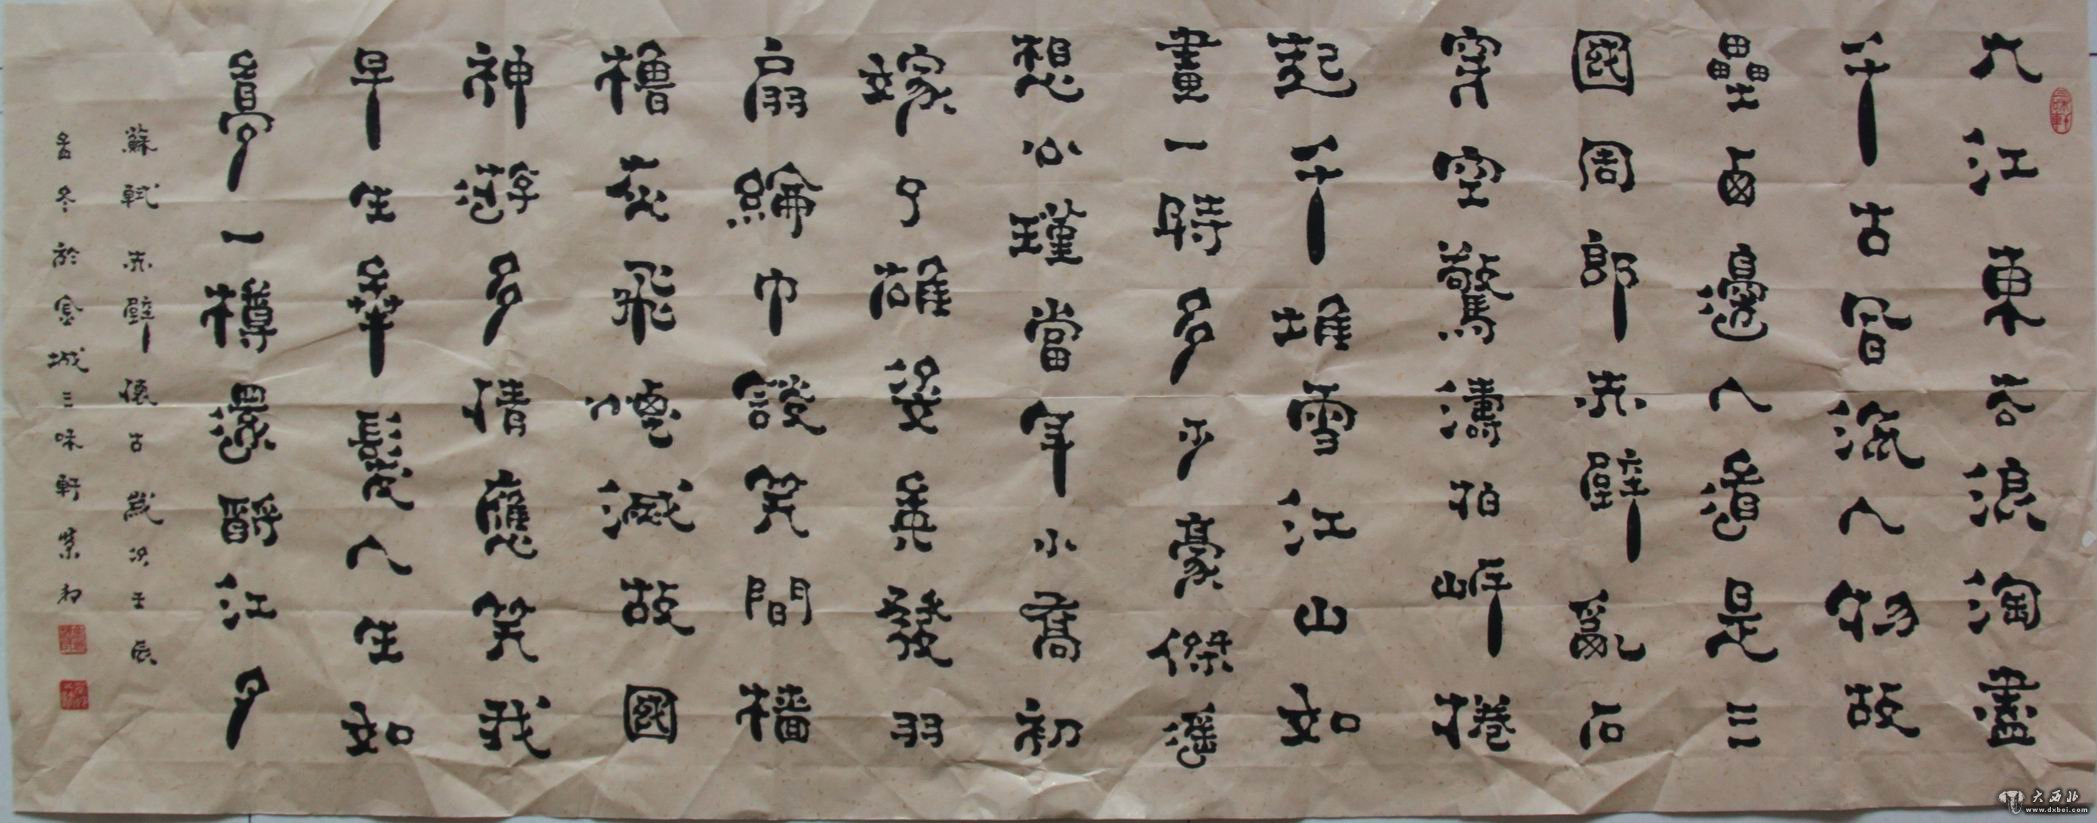 三味軒
大江東去浪淘盡
千古風流人物故
壘西邊人道是三
國周郎赤壁亂石
穿空驚濤拍岸捲
起千堆雪江山如
畫一時多少豪傑遙
想公瑾當年小喬初
嫁了雄姿英發羽
扇綸巾談笑間檣
櫓灰飛煙滅故國
神遊多情應笑我
早生華髮人生如
夢一樽還酹江月
蘇軾赤壁懷古歲次壬辰
孟冬於金城三味軒
大西北
www.dxbei.com